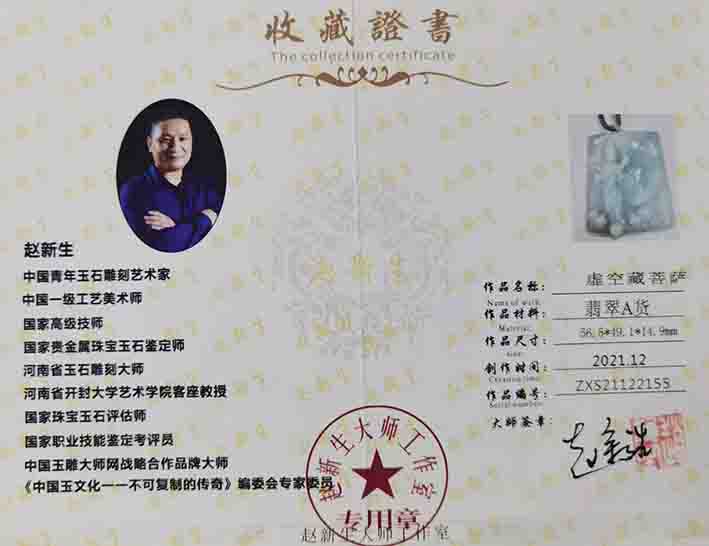 收藏證書
The collection certificate
赵新生
中国青年玉石雕刻艺术家
中国一级工艺美术师
国家高级技师
国家贵金属珠宝玉石鉴定师
河南省玉石雕刻大师
河南省开封大学艺术学院客座教授
国家珠宝玉石评估师
国家职业技能鉴定考评员
中国玉雕大师网战略合作品牌大师
《中国玉文化一一不可复制的传奇》编委会专家委员
作品名称: 虚空藏菩萨
Name of work:
作品材料: 翡翠A货
Material:
作品尺寸: 56.6*49.1*14.9mm
size:
创作时间: 2021.12
Creation time:
作品编号: ZXS21122155
Serial number:
大师签章: 赵新生
赵新生大师工作室
专用章
赵新生大师工作室